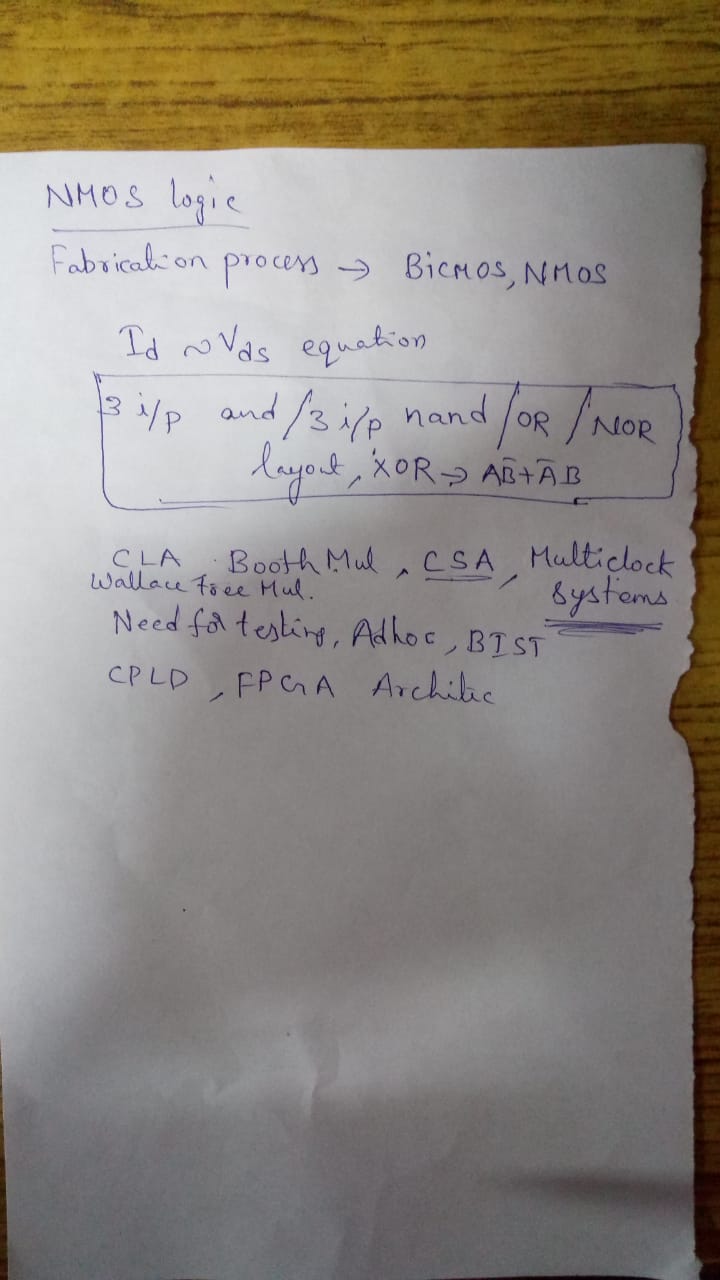 NMOS logic
Fabrication process → BiCMOS, NMOS
Id ~ Vds equation
3 i/p and / 3 i/p nand / OR / NOR
layout, XOR → AB̄+ĀB
CLA . Booth Mul , CSA , Multiclock
Wallace Tree Mul. Systems
Need for testing, Adhoc, BIST
CPLD , FPGA Architec